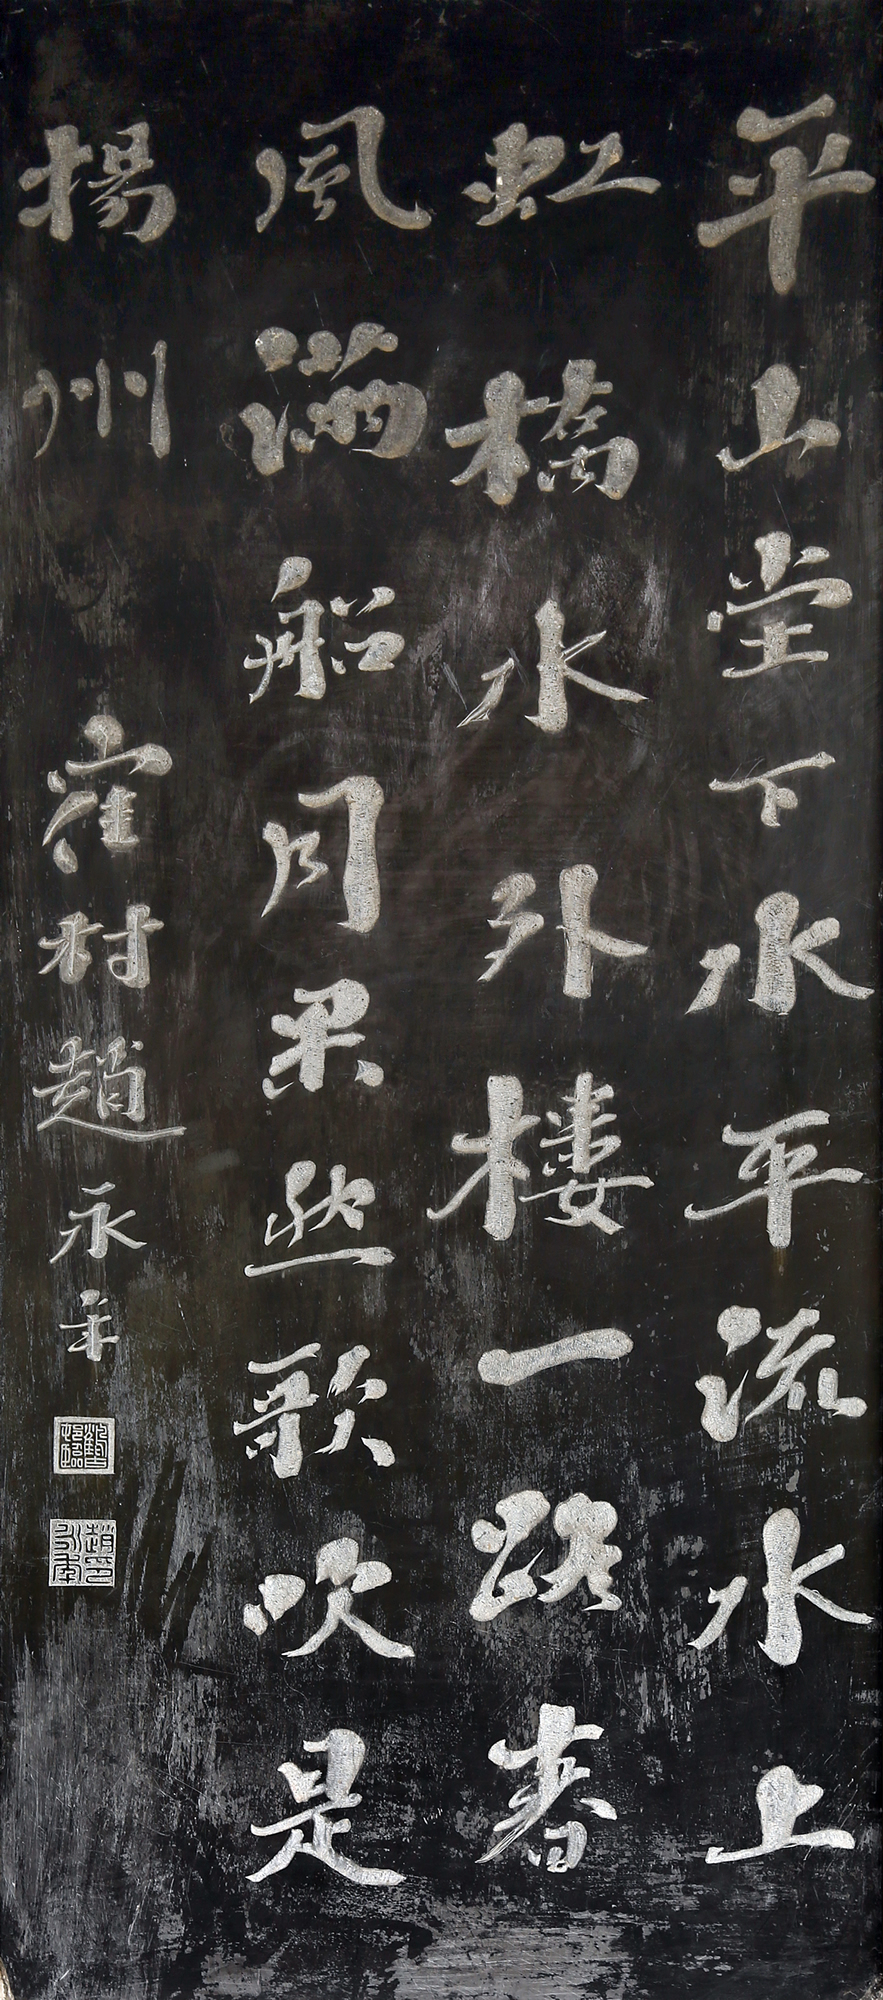 平山堂下水平流水上
虹橋水外樓一路春
風滿船月果然歌吹是
揚州
窪村趙永年
趙印永年